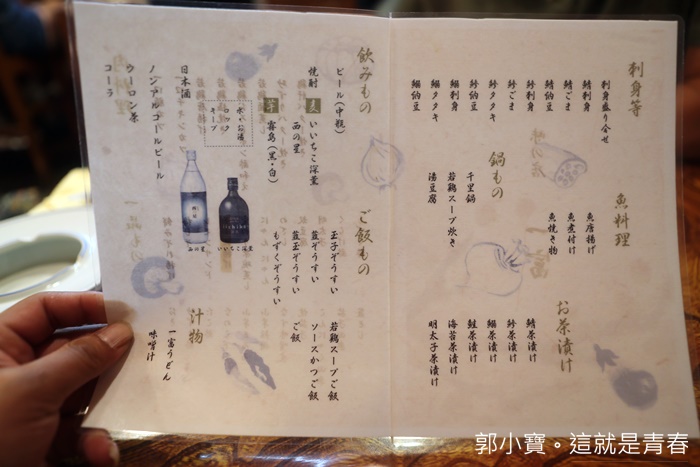 刺身等
刺身盛り合せ
鯖刺身
鯖ごま
鯖納豆
鯵刺身
鯵ごま
鯵タタキ
鯵納豆
鰯刺身
鰯タタキ
鰯納豆
魚料理
魚唐揚げ
魚煮付け
魚焼き物
鍋もの
千里鍋
若鶏スープ炊き
湯豆腐
お茶漬け
鯖茶漬け
鯵茶漬け
鰯茶漬け
鮭茶漬け
海苔茶漬け
明太子茶漬け
飲みもの
ビール(中瓶)
焼酎
麦 いいちこ深薫
西の星
芋 霧島(黒・白)
水・お湯
ロック
キープ
日本酒
ノンアルコールビール
ウーロン茶
コーラ
西の星
いいちこ深薫
ご飯もの
玉子ぞうすい
韮ぞうすい
韮玉ぞうすい
もずくぞうすい
若鶏スープご飯
ソースかつご飯
ご飯
汁物
一富うどん
味噌汁
郭小寶。這就是青春